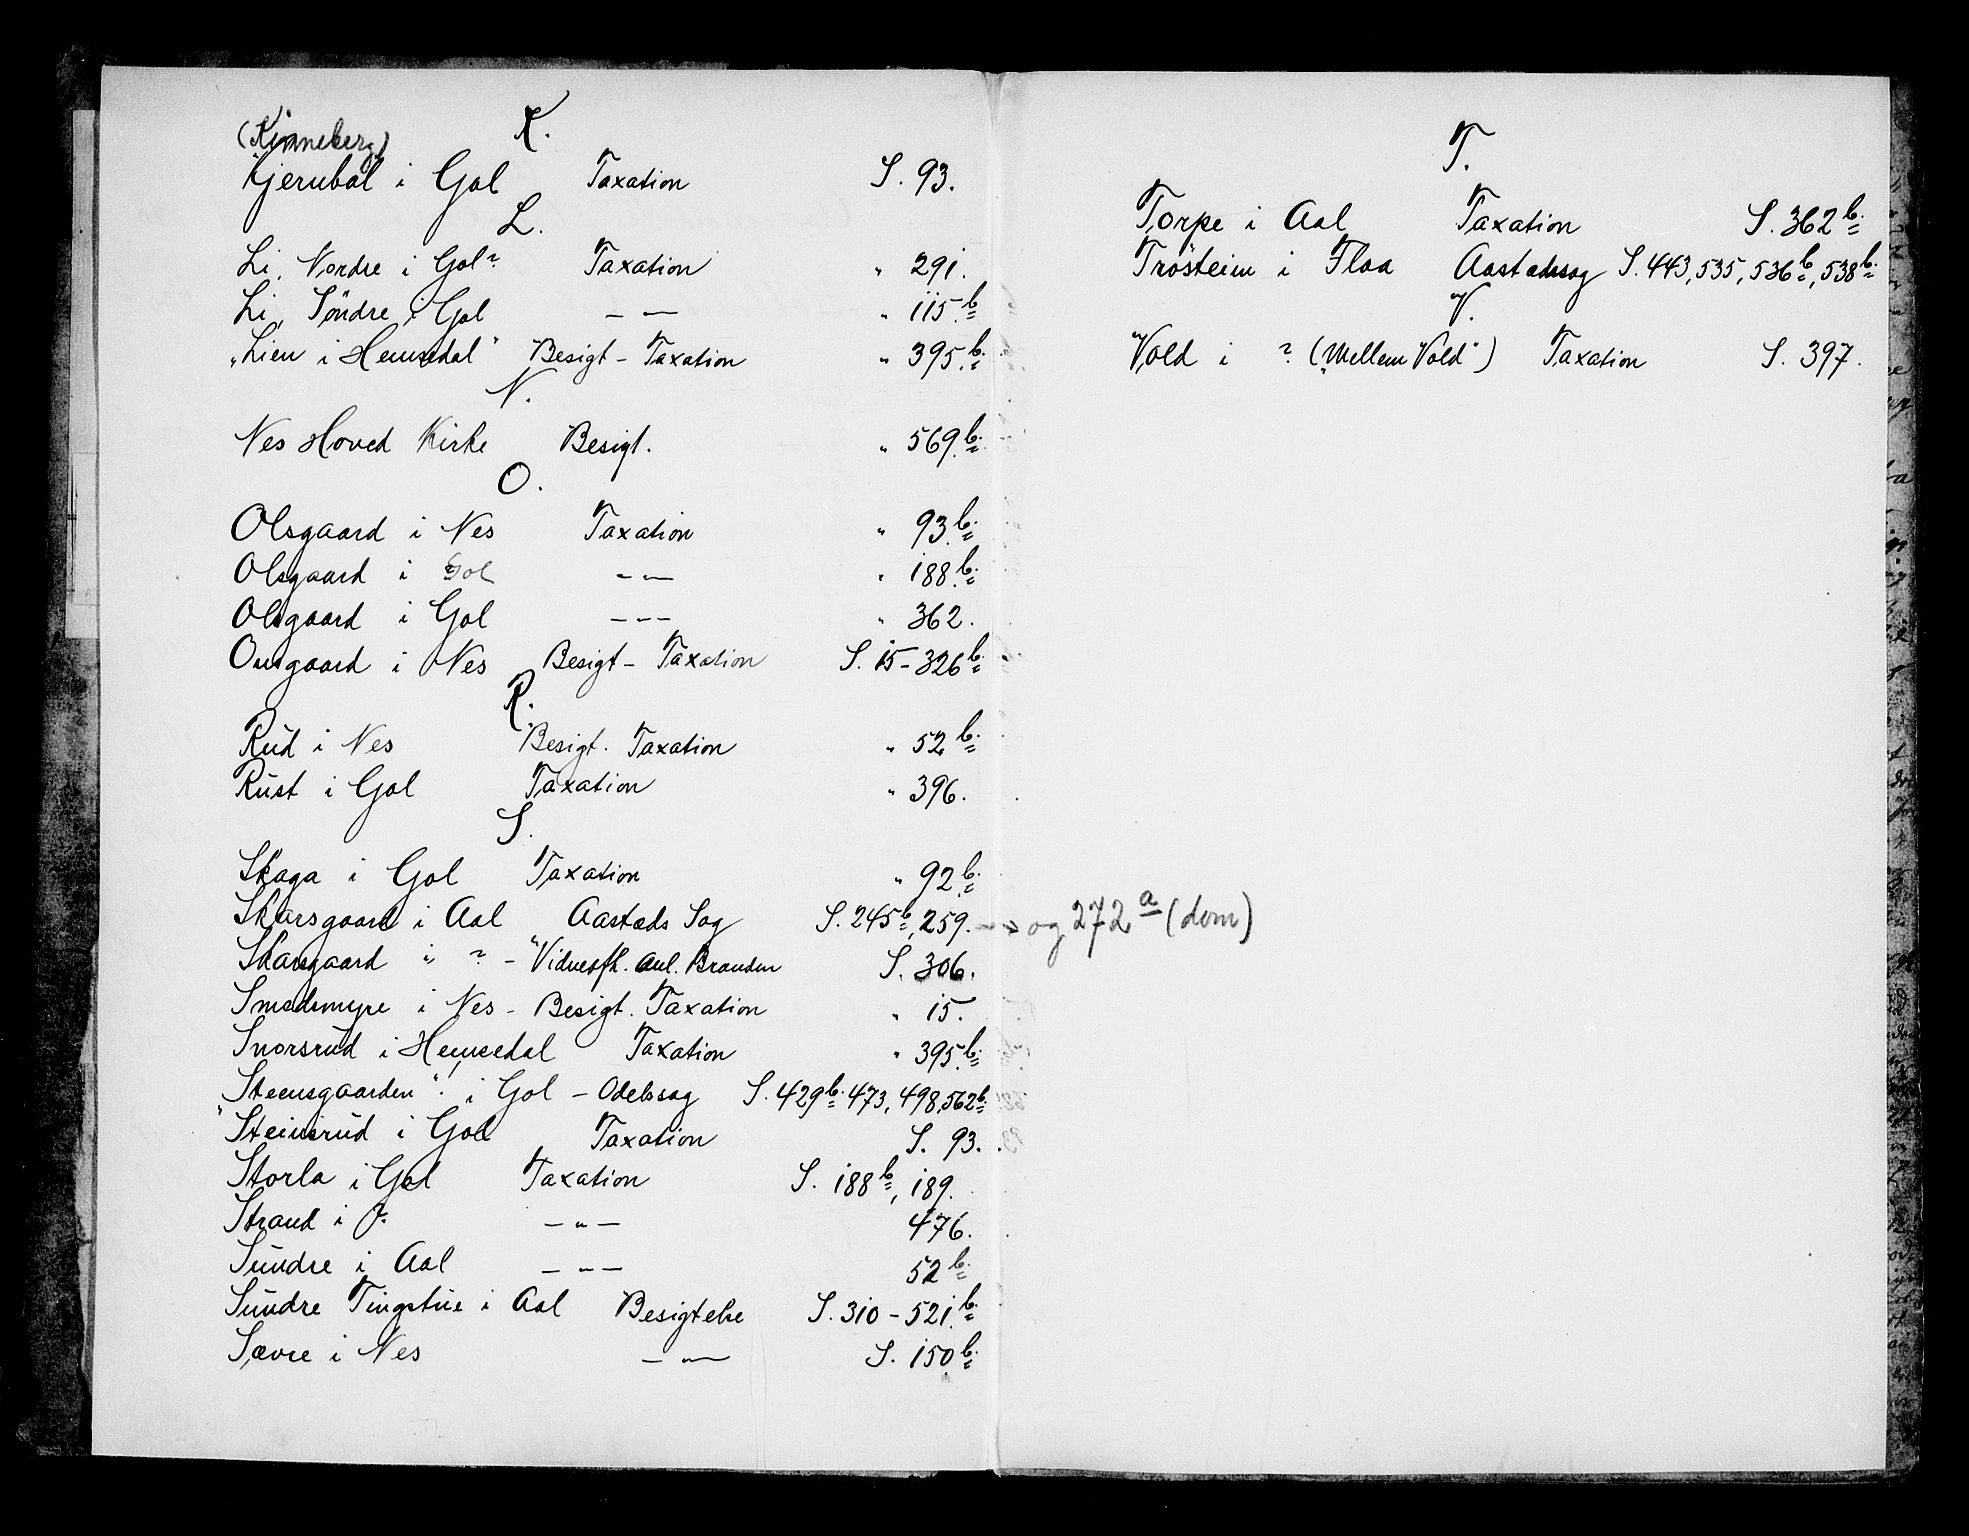 K.
(Kinneberg)
Kjerubøl i Gol Taxation S. 93.
L.
Li, Nordre i Gol? Taxation " 291.
Li, Söndre i Gol — — " 115 b.
"Lien i Hemsedal" Besigt - Taxation " 395 b.
N.
Nes Hoved Kirke Besigt. " 569 b.
O.
Olsgaard i Nes Taxation " 93 b.
Olsgaard i Gol — " — " 188 b.
Olsgaard i Gol — — — " 362.
Ousgaard i Nes Besigt - Taxation S. 15 - 326 b.
R.
Rud i Nes Besigt. Taxation " 52 b.
Rust i Gol Taxation " 396.
S.
Skaga i Gol Taxation " 92 b.
Skarsgaard i Aal Aasteds Sag S. 245 b, 259. → og 272 a (dom)
Skarsgaard i ? - Vidnesfh. anl. Branden S. 306.
Smedsmyre i Nes - Besigt. Taxation " 15.
Snorsrud i Hemsedal Taxation " 395 b.
"Steensgaarden". i Gol - Odelssag S. 429 b. 473, 498, 562 b.
Steinsrud i Gol Taxation S. 93.
Storla i Gol Taxation S. 188 b, 189.
Strand i ?. — " — 476.
Sundre i Aal — " — 52 b.
Sundre Tingstue i Aal Besigtelse S. 310 - 521 b.
Sævre i Nes — " — S. 150 b.
T.
Torpe i Aal Taxation S. 362 b.
Trösteim i Flaa Aastedssag S. 443, 535, 536 b, 538 b.
V.
Vold i ? ("Mellem Vold") Taxation S. 397.